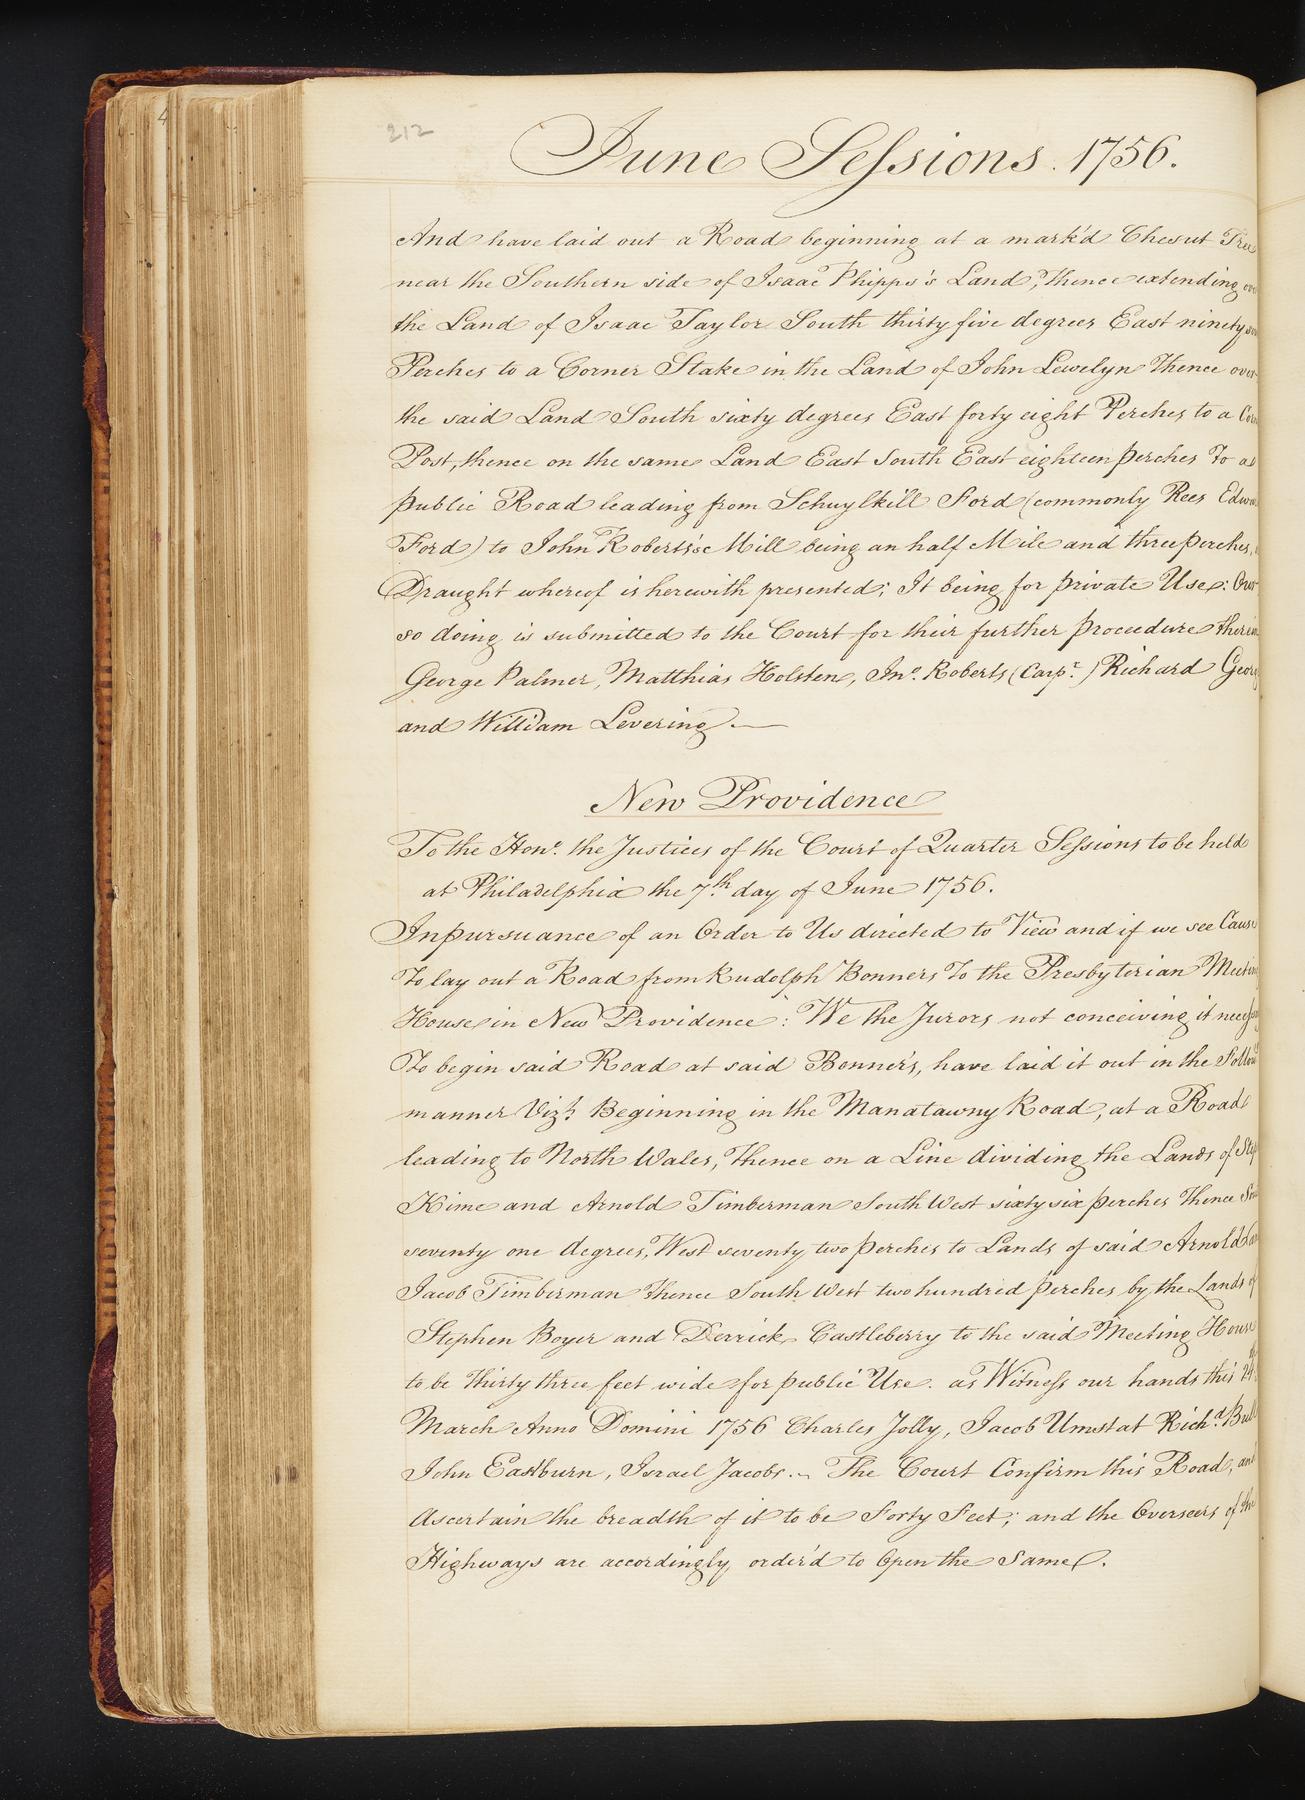 212
June Sessions. 1756.
And have laid out a Road beginning at a mark'd Chesnut Tree
near the Southern side of Isaac Phipps's Land; thence extending over
the Land of Isaac Taylor South thirty five degrees East ninety
Perches to a Corner Stake in the Land of John Lewelyn thence over
the said Land South sixty degrees East forty eight Perches to a
Post, thence on the same Land East South East eighteen perches To a
public Road leading from Schuylkill Ford (commonly Rees
Ford) to John Roberts's Mill being an half Mile and three perches,
Draught whereof is herewith presented; It being for private Use: Our
so doing is submitted to the Court for their further Procedure therein
George Palmer, Matthias Holsten, Jno. Roberts (Carpr.) Richard
and William Levering.
New Providence
To the Honl. the Justices of the Court of Quarter Sessions to be held
at Philadelphia the 7th. day of June 1756.
In pursuance of an Order to Us directed to View and if we see Cause
To lay out a Road from Rudolph Bonners To the Presbyterian Meeting
House in New Providence: We the Jurors not conceiving it
To begin said Road at said Bonner's, have laid it out in the
manner Vizt. Beginning in the Manatawny Road, at a Road
leading to North Wales, Thence on a Line dividing the Lands of
Kime and Arnold Timberman South West sixty six perches Thence
seventy one degrees, West seventy two perches to Lands of said Arnold
Jacob Timberman thence South West two hundred perches by the Lands of
Stephen Boyer and Derrick Castleberry to the said Meeting House
to be Thirty three feet wide for public Use. as Witness our hands this 24
March Anno Domini 1756 Charles Jolly, Jacob Umstat Richd.
John Eastburn, Israel Jacobs. The Court Confirm this Road, and
Ascertain the breadth of it to be Forty Feet; and the Overseers of the
Highways are accordingly order'd to Open the Same.